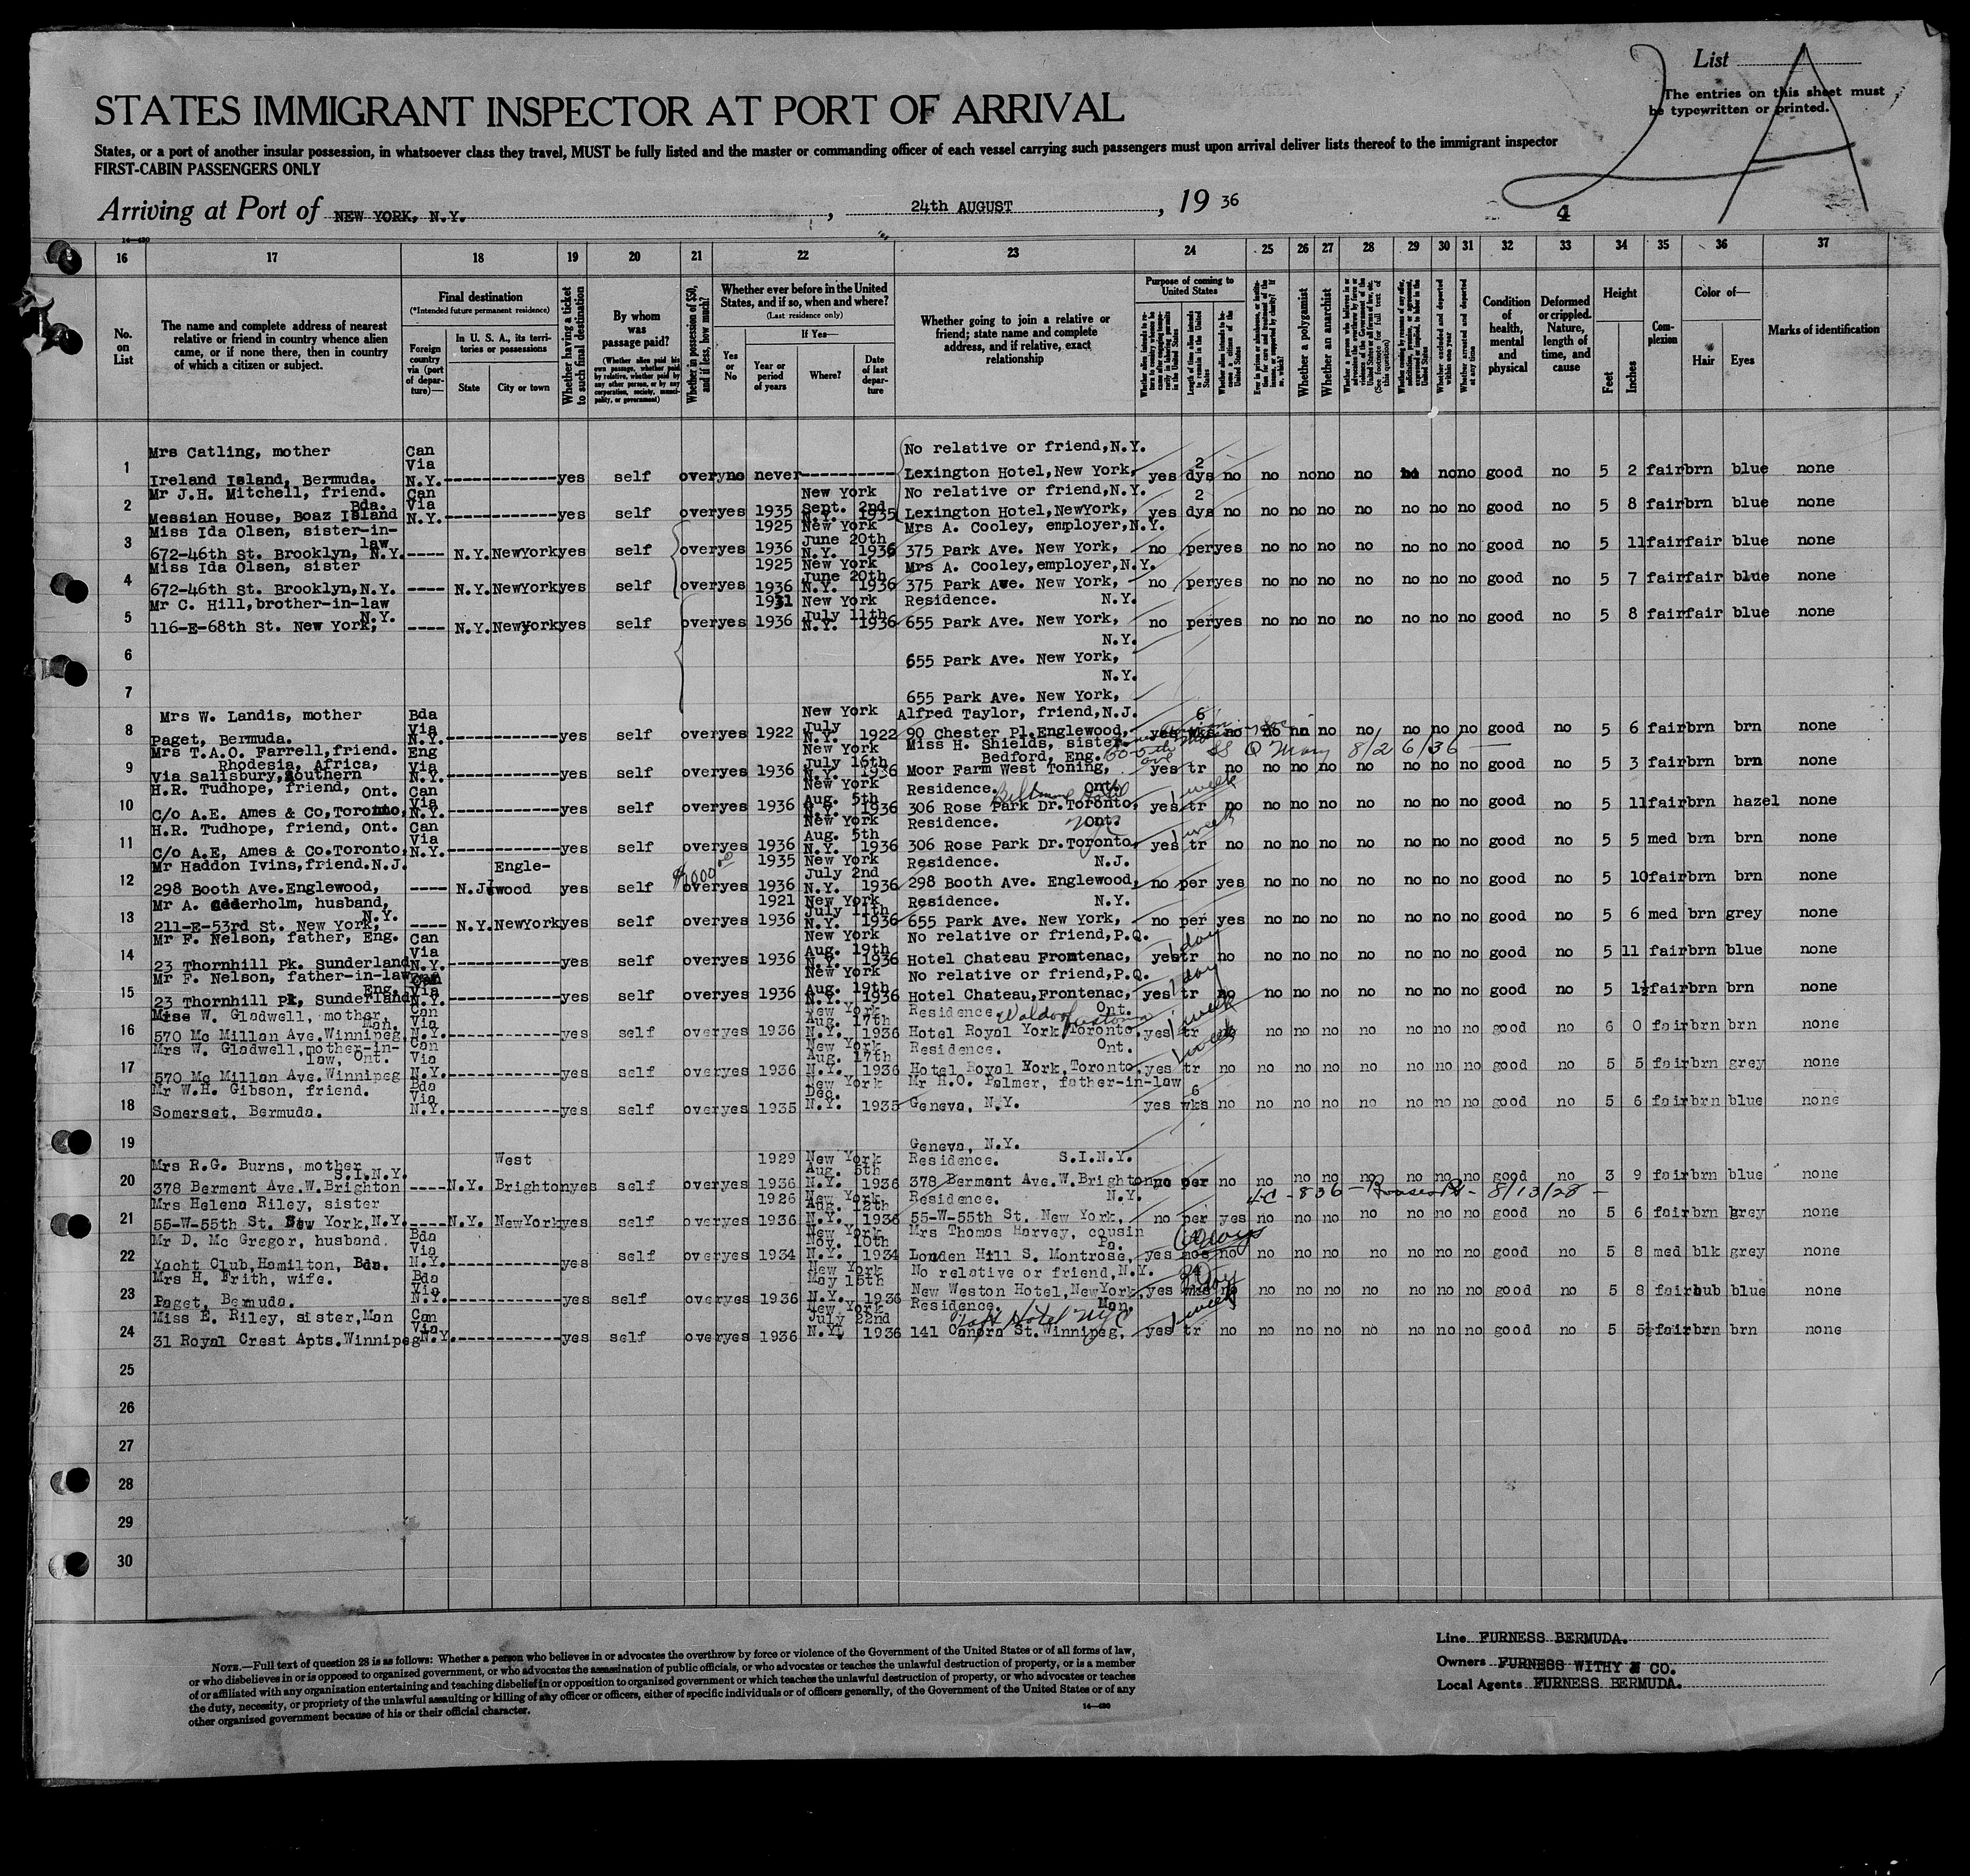 List
The entries on this sheet must
be typewritten or printed.
2A
STATES IMMIGRANT INSPECTOR AT PORT OF ARRIVAL
States, or a port of another insular possession, in whatsoever class they travel, MUST be fully listed and the master or commanding officer of each vessel carrying such passengers must upon arrival deliver lists thereof to the immigrant inspector
FIRST-CABIN PASSENGERS ONLY
Arriving at Port of NEW YORK, N.Y. , 24th AUGUST , 19 36
4
16 17 18 19 20 21 22 23 24 25 26 27 28 29 30 31 32 33 34 35 36 37
No. on List
The name and complete address of nearest relative or friend in country whence alien came, or if none there, then in country of which a citizen or subject.
Final destination
(*Intended future permanent residence)
Foreign country via (port of departure)—
In U. S. A., its territories or possessions
State City or town
Whether having a ticket to such final destination
By whom was passage paid?
(Whether alien paid his own passage, whether paid by relative, whether paid by any other person, or by any corporation, society, municipality, or government)
Whether in possession of $50, and if less, how much?
Whether ever before in the United States, and if so, when and where?
(Last residence only)
Yes or No
If Yes—
Year or period of years Where? Date of last departure
Whether going to join a relative or friend; state name and complete address, and if relative, exact relationship
Purpose of coming to United States
Whether a polygamist
Whether an anarchist
Condition of health, mental and physical
Deformed or crippled. Nature, length of time, and cause
Height
Feet Inches
Complexion
Color of—
Hair Eyes
Marks of identification
Mrs Catling, mother Can Via No relative or friend,N.Y. 2
1 Ireland Island, Bermuda. N.Y. yes self over no never Lexington Hotel,New York, yes dys no no no no no no no no good no 5 2 fair brn blue none
Mr J.H. Mitchell, friend. Bda. Can Via New York Sept. 2nd No relative or friend,N.Y. 2
2 Messian House, Boaz Island N.Y. yes self over yes 1935 N.Y. 1935 Lexington Hotel,NewYork, yes dys no no no no no no no no good no 5 8 fair brn blue none
Miss Ida Olsen, sister-in-law 1925 New York June 20th Mrs A. Cooley, employer,N.Y.
3 672-46th St. Brooklyn, N.Y. ---- N.Y. NewYork yes self over yes 1936 N.Y. 1936 375 Park Ave. New York, no per yes no no no no no no no good no 5 11 fair fair blue none
Miss Ida Olsen, sister 1925 New York June 20th Mrs A. Cooley,employer,N.Y.
4 672-46th St. Brooklyn,N.Y. ---- N.Y. NewYork yes self over yes 1936 N.Y. 1936 375 Park Ave. New York, no per yes no no no no no no no good no 5 7 fair fair blue none
Mr C. Hill,brother-in-law N.Y. 1931 New York July 11th Residence. N.Y.
5 116-E-68th St. New York, ---- N.Y. Newyork yes self over yes 1936 N.Y. 1936 655 Park Ave. New York, no per yes no no no no no no no good no 5 8 fair fair blue none
N.Y.
6 655 Park Ave. New York,
N.Y.
7 655 Park Ave. New York,
Mrs W. Landis, mother Bda Via New York July Alfred Taylor, friend,N.J. 6
8 Paget, Bermuda. N.Y. yes self over yes 1922 N.Y. 1922 90 Chester Pl.Englewood, yes wks no no no no no no no no good no 5 6 fair brn brn none
Mrs T.A.O. Farrell,friend. Rhodesia, Africa, Eng Via New York July 16th Miss H. Shields, sister Bedford, Eng. SS Q Mary 8/26/36
9 Via Salisbury,Southern N.Y. yes self over yes 1936 N.Y. 1936 Moor Farm West Toning, yes tr no no no no no no no no good no 5 3 fair brn brn none
H.R. Tudhope, friend, Ont. Can Via New York Aug. 5th Residence. Ont. Biltmore Hotel 1 week
10 C/o A.E. Ames & Co,Toronto, N.Y. yes self over yes 1936 N.Y. 1936 306 Rose Park Dr.Toronto, yes tr no no no no no no no no good no 5 11 fair brn hazel none
H.R. Tudhope, friend, Ont. Can Via New York Aug. 5th Residence. Ont. NYC 1 week
11 C/o A.E, Ames & Co.Toronto, N.Y. yes self over yes 1936 N.Y. 1936 306 Rose Park Dr.Toronto, yes tr no no no no no no no no good no 5 5 med brn brn none
Mr Haddon Ivins,friend.N.J. Engle- $1000.00 1935 New York July 2nd Residence. N.J.
12 298 Booth Ave.Englewood, ---- N.J. wood yes self over yes 1936 N.Y. 1936 298 Booth Ave. Englewood, no per yes no no no no no no no good no 5 10 fair brn brn none
Mr A. Cederholm, husband, N.Y. 1921 New York July 11th Residence. N.Y.
13 211-E-53rd St. New York, ---- N.Y. NewYork yes self over yes 1936 N.Y. 1936 655 Park Ave. New York, no per yes no no no no no no no good no 5 6 med brn grey none
Mr F. Nelson, father, Eng. Can Via New York Aug. 19th No relative or friend,P.Q. 1 day
14 23 Thornhill Pk. Sunderland N.Y. yes self over yes 1936 N.Y. 1936 Hotel Chateau Frontenac, yes tr no no no no no no no no good no 5 11 fair brn blue none
Mr F. Nelson, father-in-law Eng. Can Via New York Aug. 19th No relative or friend,P.Q. 1 day
15 23 Thornhill Pk, Sunderland N.Y. yes self over yes 1936 N.Y. 1936 Hotel Chateau,Frontenac, yes tr no no no no no no no no good no 5 1½ fair brn brn none
Miss W. Gladwell, mother, Man. Can Via New York Aug. 17th Residence. Ont. Waldorf Astoria 1 week
16 570 Mc Millan Ave.Winnipeg N.Y. yes self over yes 1936 N.Y. 1936 Hotel Royal York,Toronto. yes tr no no no no no no no no good no 6 0 fair brn brn none
Mrs W. Gladwell,mother-in-law, Ont. Can Via New York Aug. 17th Residence. Ont. 1 week
17 570 Mc Millan Ave.Winnipeg N.Y. yes self over yes 1936 N.Y. 1936 Hotel Royal York,Toronto. yes tr no no no no no no no no good no 5 5 fair brn grey none
Mr W.H. Gibson, friend. Bda Via New York Dec. Mr H.O. Palmer, father-in-law 6
18 Somerset, Bermuda. N.Y. yes self over yes 1935 N.Y. 1935 Geneva, N.Y. yes wks no no no no no no no no good no 5 6 fair brn blue none
19 Geneva, N.Y.
Mrs R.G. Burns, mother S.I.N.Y. West 1929 New York Aug. 5th Residence. S.I.N.Y.
20 378 Berment Ave.W.Brighton ---- N.Y. Brighton yes self over yes 1936 N.Y. 1936 378 Berment Ave.W.Brighton no per no no no no no no no no good no 3 9 fair brn blue none
Mrs Helena Riley, sister 1926 New York Aug. 12th Residence. N.Y. 8/13/28
21 55-W-55th St. New York,N.Y. ---- N.Y. NewYork yes self over yes 1936 N.Y. 1936 55-W-55th St. New York, no per yes no no no no no no no good no 5 6 fair brn grey none
Mr D. Mc Gregor, husband. Bda Via New York Nov. 10th Mrs Thomas Harvey, cousin Pa.
22 Yacht Club,Hamilton, Bda. N.Y. yes self over yes 1934 N.Y. 1934 Louden Hill S. Montrose, yes mos no no no no no no no no good no 5 8 med blk grey none
Mrs H. Frith, wife. Bda Via New York May 15th No relative or friend,N.Y.
23 Paget, Bermuda. N.Y. yes self over yes 1936 N.Y. 1936 New Weston Hotel,NewYork yes wks no no no no no no no no good no 5 8 fair bub blue none
Miss E. Riley, sister,Man Can Via New York July 22nd Residence. Man. Taft Hotel NYC 1 week
24 31 Royal Crest Apts.Winnipeg N.Y. yes self over yes 1936 N.Y. 1936 141 Canora St.Winnipeg, yes tr no no no no no no no no good no 5 5½ fair brn brn none
25
26
27
28
29
30
NOTE.—Full text of question 28 is as follows: Whether a person who believes in or advocates the overthrow by force or violence of the Government of the United States or of all forms of law,
or who disbelieves in or is opposed to organized government, or who advocates the assassination of public officials, or who advocates or teaches the unlawful destruction of property, or is a member
of or affiliated with any organization entertaining and teaching disbelief in or opposition to organized government or which teaches the unlawful destruction of property, or who advocates or teaches
the duty, necessity, or propriety of the unlawful assaulting or killing of any officer or officers, either of specific individuals or of officers generally, of the Government of the United States or of any
other organized government because of his or their official character.
14—430
Line FURNESS BERMUDA.
Owners FURNESS WITHY & CO.
Local Agents FURNESS BERMUDA.